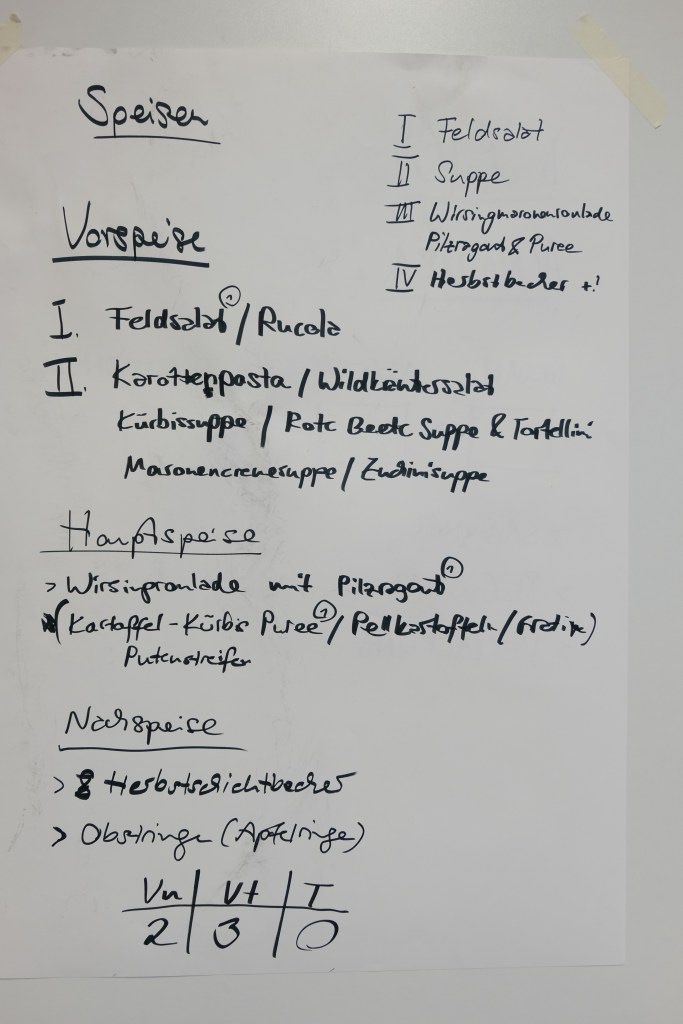 Speisen
I Feldsalat
II Suppe
III Wirsingmaronenroulade
Pilzragout & Puree
IV Herbstbecher +!
Vorspeise
I. Feldsalat ① / Rucola
II. Karottenpasta / Wildkräutersalat
Kürbissuppe / Rote Beete Suppe & Tortellini
Maronencremesuppe / Zuchinisuppe
Hauptspeise
> Wirsingroulade mit Pilzragout ①
(Kartoffel-Kürbis Puree ① / Pellkartoffeln / Gratin)
Putenstreifen
Nachspeise
> Herbstschichtbecher
> Obstringe (Apfelringe)
Vn | Vt | T
2 | 3 | 0